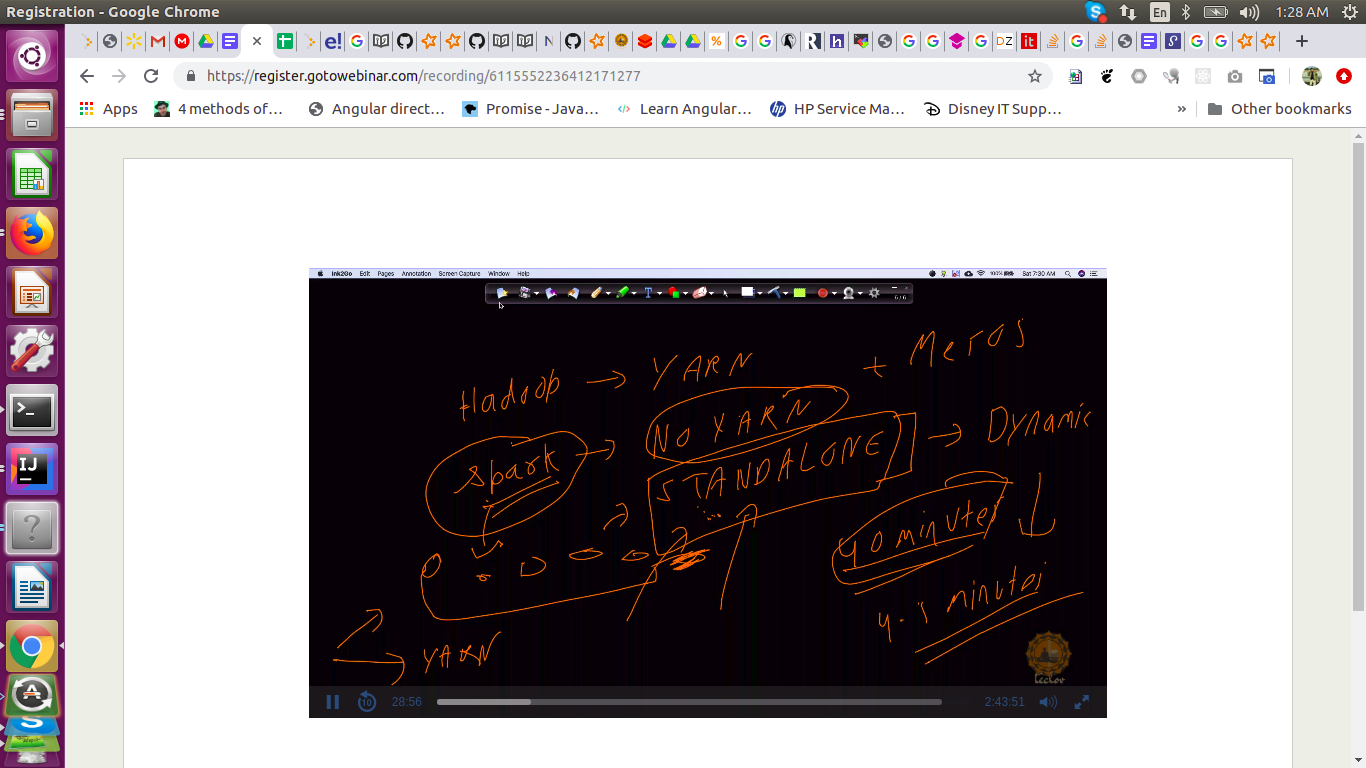 Registration - Google Chrome
En
1:28 AM
https://register.gotowebinar.com/recording/6115552236412171277
Apps
4 methods of…
Angular direct…
Promise - Java…
Learn Angular…
HP Service Ma…
Disney IT Supp…
»
Other bookmarks
Ink2Go Edit Pages Annotation Screen Capture Window Help
100%
Sat 7:30 AM
Hadoop → YARN + Mesos
Spark → NO YARN
STANDALONE → Dynamic
40 minutes
4.5 minutes
YARN
LecLov
10
28:56
2:43:51